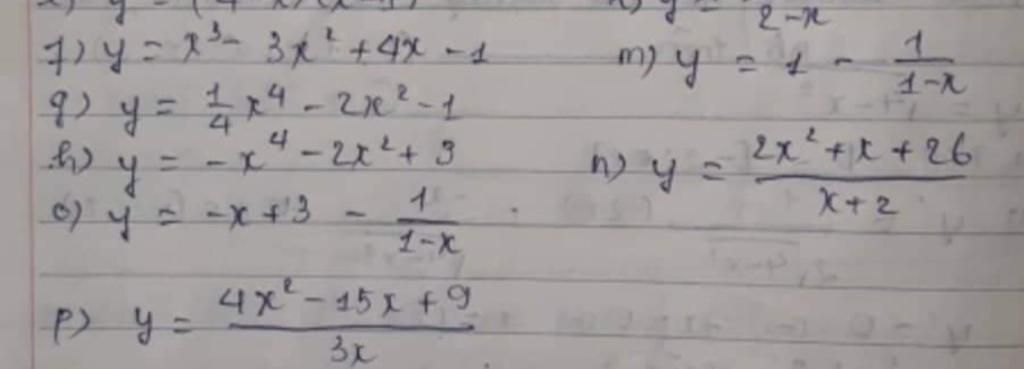 f) y = x³ - 3x² + 4x - 1
m) y = 1 - 1/(1-x)
g) y = 1/4 x⁴ - 2x² - 1
h) y = -x⁴ - 2x² + 3
n) y = (2x² + x + 26)/(x + 2)
o) y = -x + 3 - 1/(1-x)
p) y = (4x² - 15x + 9)/3x